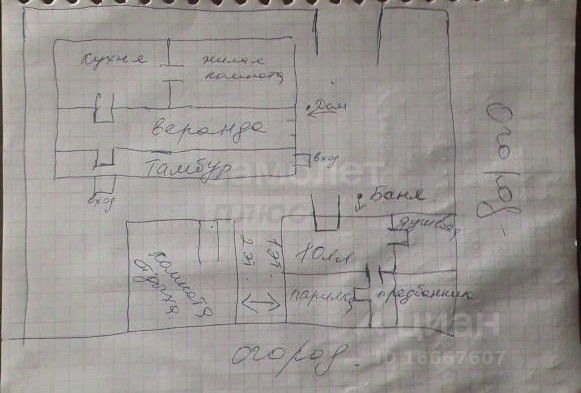 кухня
жилая
комната
Дом
веранда
вход
Тамбур
вход
Самолет
плюс
Баня
Огород
душевая
комната
отдыха
1 эт.
2 эт.
Холл
парилка
предбанник
Циан
ID 16667607
огород.